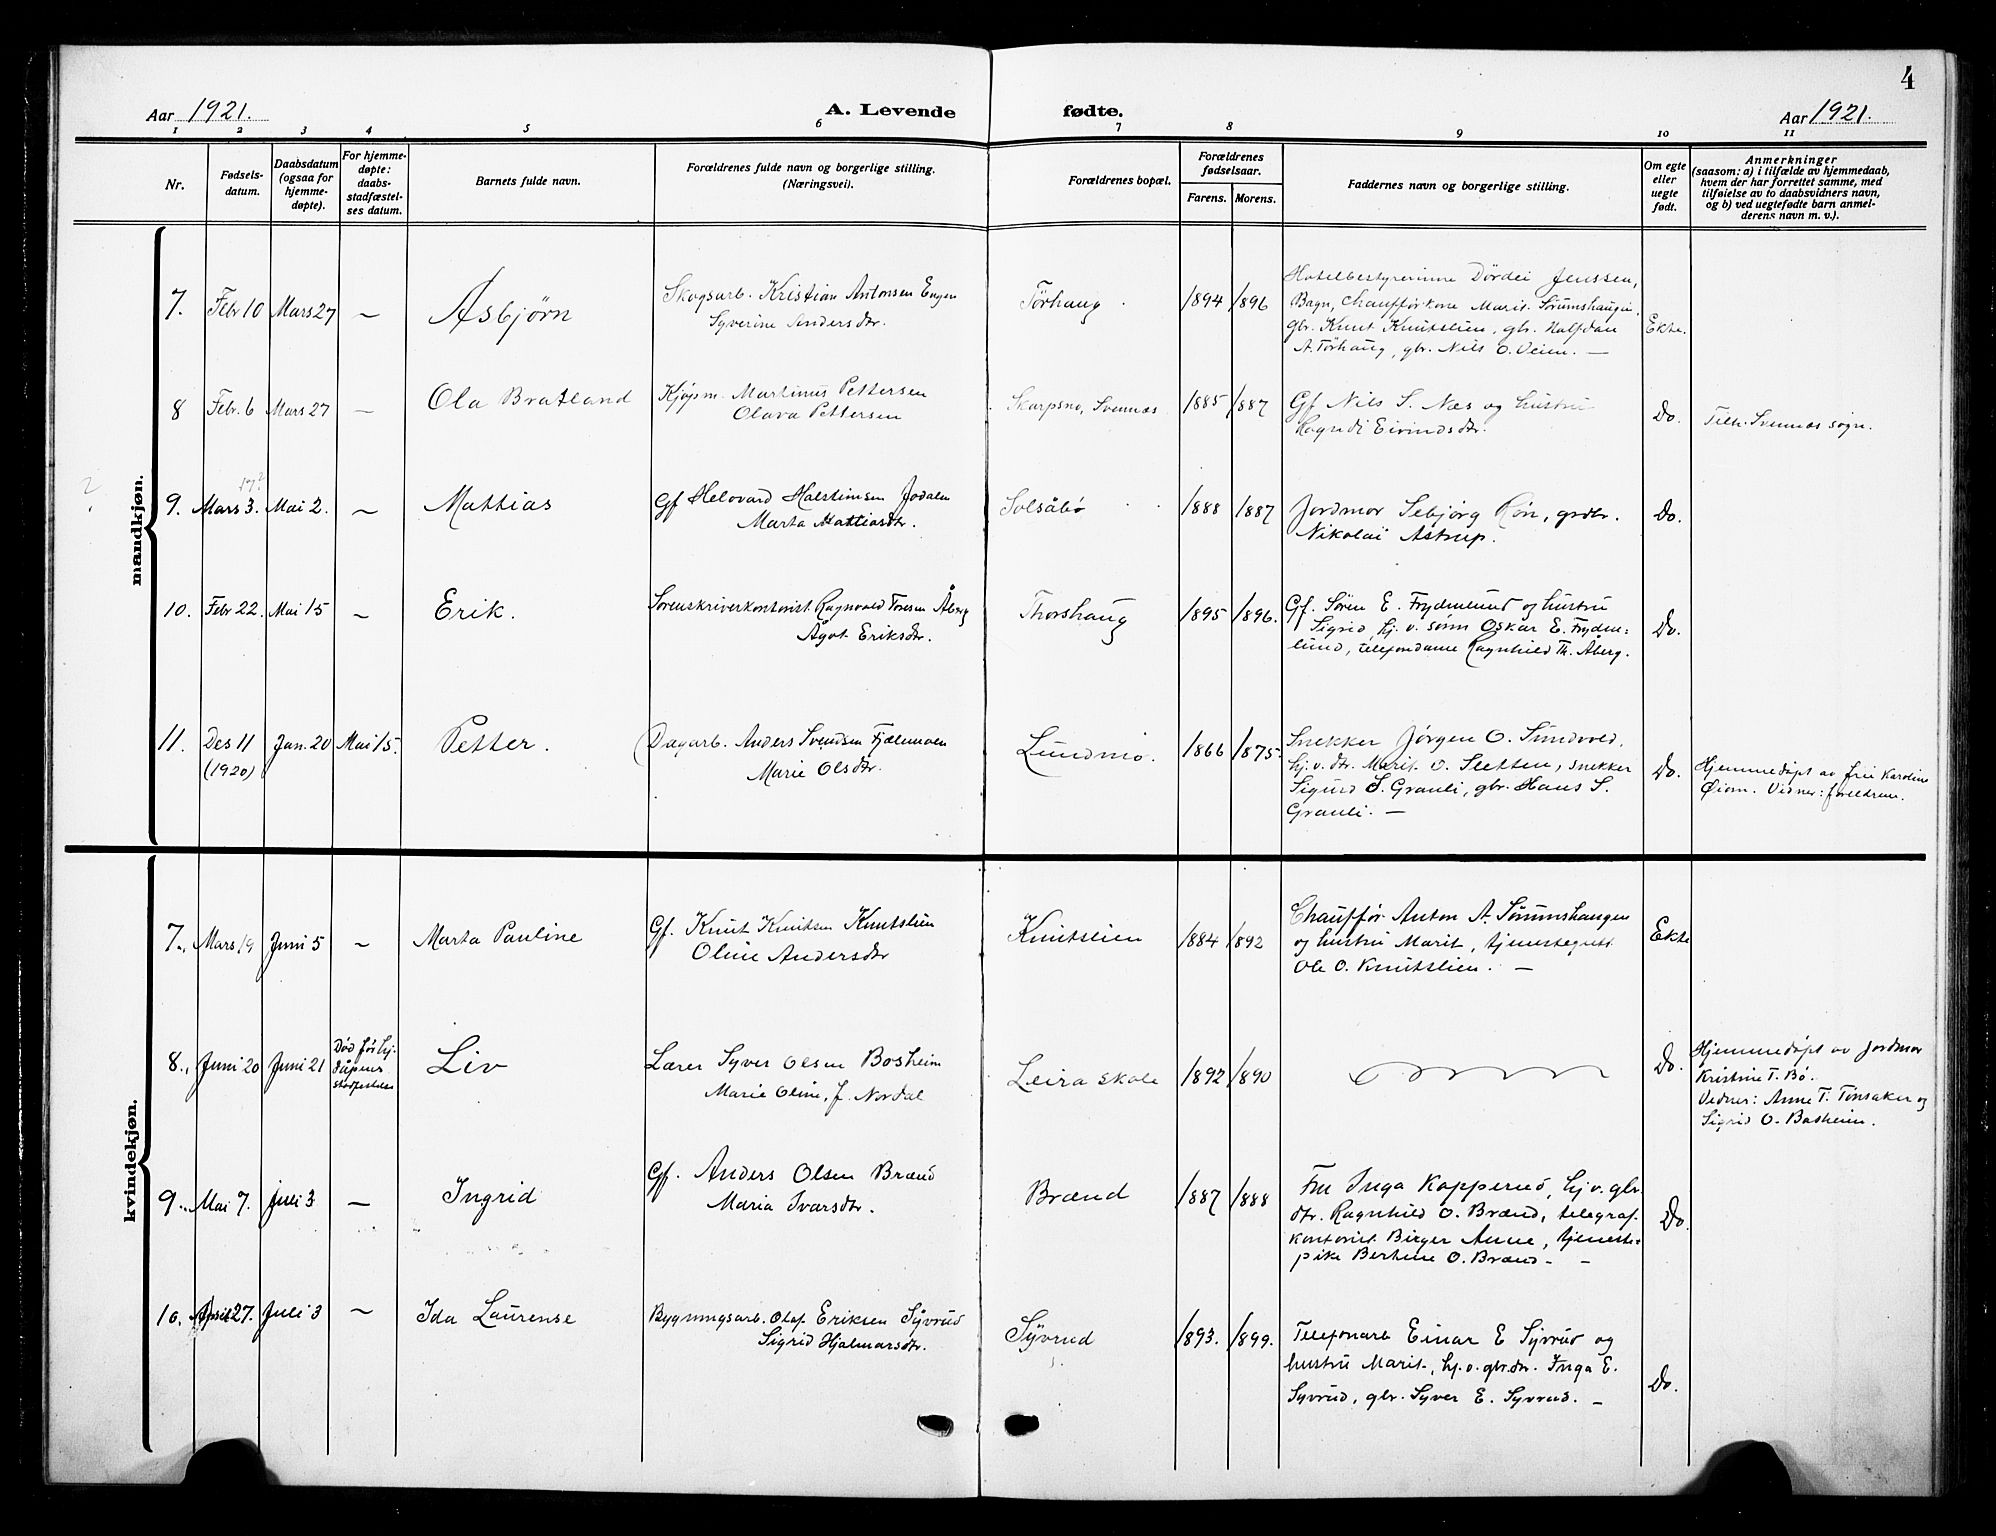 4
Aar 1921.
A. Levende fødte.
Aar 1921.
1 2 3 4 5 6 7 8 9 10 11
Nr.
Fødsels-
datum.
Daabsdatum
(ogsaa for
hjemme-
døpte).
For hjemme-
døpte:
daabs-
stadfæstel-
ses datum.
Barnets fulde navn.
Forældrenes fulde navn og borgerlige stilling.
(Næringsvei).
Forældrenes bopæl.
Forældrenes
fødselsaar.
Farens. Morens.
Faddernes navn og borgerlige stilling.
Om egte
eller
uegte
født.
Anmerkninger
(saasom: a) i tilfælde av hjemmedaab,
hvem der har forrettet samme, med
tilføielse av to daabsvidners navn,
og b) ved uegtefødte barn anmel-
derens navn m. v.).
mandkjøn.
7. Febr 10 Mars 27 — Asbjørn
Skogsarb. Kristian Antonsen Engen
Syverine Andersdtr.
Tørhaug 1894 1896
Hotelbestyrerinne Dørdei Jenssen,
Bagn, Chaufførkone Marit Sørumshaugen,
gbr. Knut Knutslien, gbr. Halfdan
A. Tørhaug, gbr. Nils O. Veien. —
Ekte.
8 Febr. 6 Mars 27 — Ola Bratland
Kjøpm. Martinus Pettersen
Olava Pettersen
Skarpsno, Svennæs 1885 1887
Gf Nils S. Næs og hustru
Ragndi Eivindsdtr.
Do.
Tilh. Svennæs sogn.
17?
9. Mars 3. Mai 2. — Mattias
Gf Helovard Halstensen Jodalen
Marta Mattiasdtr.
Solsåbø 1888 1887
Jordmor Sebjørg Røn, grdbr.
Nikolai Astrup.
Do.
10. Febr 22. Mai 15 — Erik.
Sorenskriverkontorist Ragnvald Toresen Åberg
Ågot Eriksdtr.
Thorshaug 1895 1896.
Gf. Søren E. Frydenlund og hustru
Sigrid, hj. v. sønn Oskar E. Fryden=
lund, telefondame Ragnhild Th. Åberg.
Do.
11. Des 11 Jan. 20 Mai 15. Petter.
(1920)
Dagarb. Anders Svendsen Fjælnmoen
Marie Olsdtr.
Lundmo. 1866 1875.
Snekker Jørgen O. Sundvold,
hj. v. dtr. Marit O. Sletten, snekker
Sigurd S. Grauli, gbr. Hans S.
Grauli. —
Do.
Hjemmedøpt av fru Karoline
Øiom. Vidner: foreldrene.
kvindekjøn.
7., Mars 19 Juni 5 — Marta Pauline
Gf. Knut Knutsen Knutslien
Oline Andersdtr
Knutslien 1884 1892
Chauffør Anton A. Sørumshaugen
og hustru Marit, tjenestegutt
Ole O. Knutslien. —
Ekte
8., Juni 20 Juni 21
Død før hj.
dåpens
stadfestelse
Liv
Lærer Syver Olsen Bosheim
Marie Oline, f. Nordal
Leira skole 1892 1890
Do.
Hjemmedøpt av Jordmor
Kristine T. Bø.
Vidner: Anne T. Tønsaker og
Sigrid O. Bosheim.
9., Mai 7. Juli 3 — Ingrid
Gf. Anders Olsen Brænd
Maria Ivarsdtr.
Brænd 1887 1888
Fru Inga Kopperud, hj. v. gbr.
dtr. Ragnhild O. Brænd, telegraf-
kontorist Birger Aune, tjeneste-
pike Berthine O. Brænd. —
Do.
10. April 27. Juli 3 — Ida Laurense
Bygningsarb. Olaf Eriksen Syvrud
Sigrid Hjalmarsdtr.
Syvrud 1893. 1899.
Telefonarb Einar E Syvrud og
hustru Marit, hj. v. gbr.dtr. Inga E.
Syvrud, gbr. Syver E. Syvrud. —
Do.